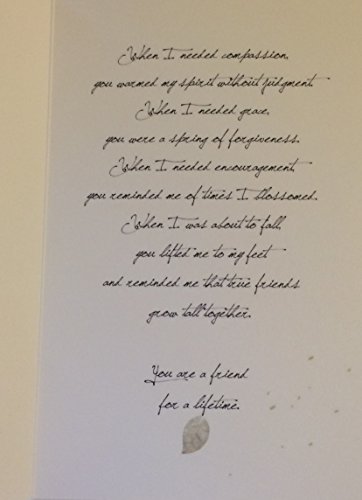 When I needed compassion,
you warmed my spirit without judgment.
When I needed grace,
you were a spring of forgiveness.
When I needed encouragement,
you reminded me of times I blossomed.
When I was about to fall,
you lifted me to my feet
and reminded me that true friends
grow tall together.
You are a friend
for a lifetime.